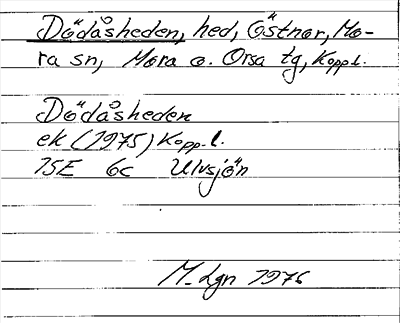 Dödåsheden, hed, Östnor, Mo-
ra sn, Mora o. Orsa tg, Kopp.l.
Dödåsheden
ek (1975) Kopp.l.
15E 6c Ulvsjön
M. Lgn 1976